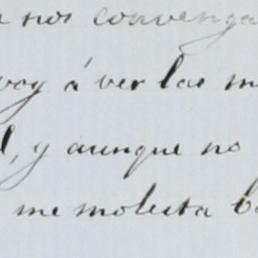 nos convenga
voy á ver las
y aunque no
me molesta